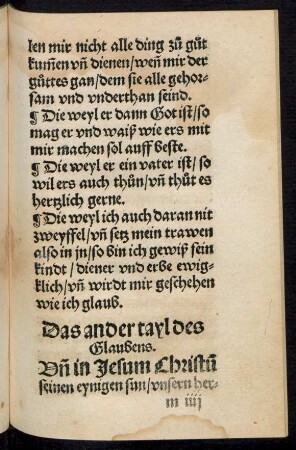 len mir nicht alle ding zů gůt
kum̃en vñ dienen/weñ mir der
gůttes gan/dem sie alle gehor⸗
sam vnd vnderthan seind.
¶ Die weyl er dann Got ist/so
mag er vnd waiß wie ers mit
mir machen sol auff beste.
¶ Die weyl er ein vater ist/so
wil ers auch thůn/vñ thůt es
hertzlich gerne.
¶ Die weyl ich auch daran nit
zweyffel/vñ setz mein trawen
also in jn/so bin ich gewiß sein
kindt/diener vnd erbe ewig⸗
klich/vñ wirdt mir geschehen
wie ich glaub.
Das ander tayl des
Glaubens.
Vñ in Jesum Christũ
seinen eynigen sun/vnsern her⸗
m iiij